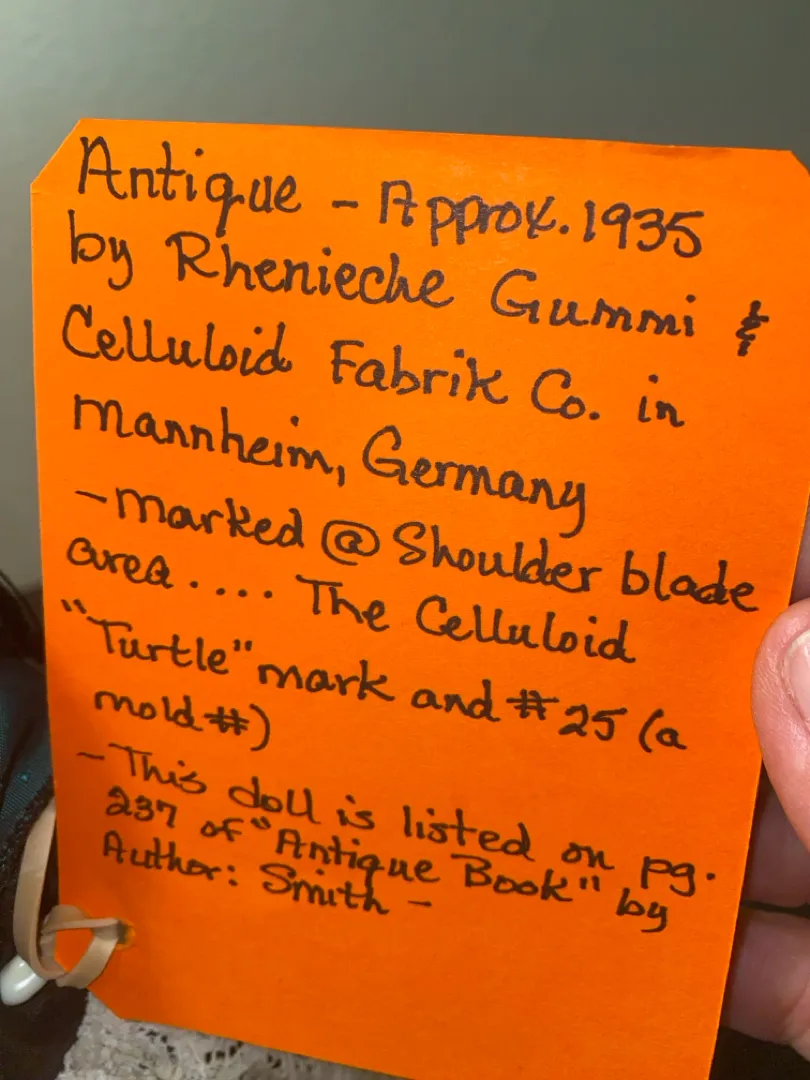 Antique - Approx. 1935
by Rhenieche Gummi &
Celluloid Fabrik Co. in
Mannheim, Germany
- Marked @ Shoulder blade
area.... The Celluloid
"Turtle" mark and #25 (a
mold #)
- This doll is listed on pg.
237 of "Antique Book" by
Author: Smith -